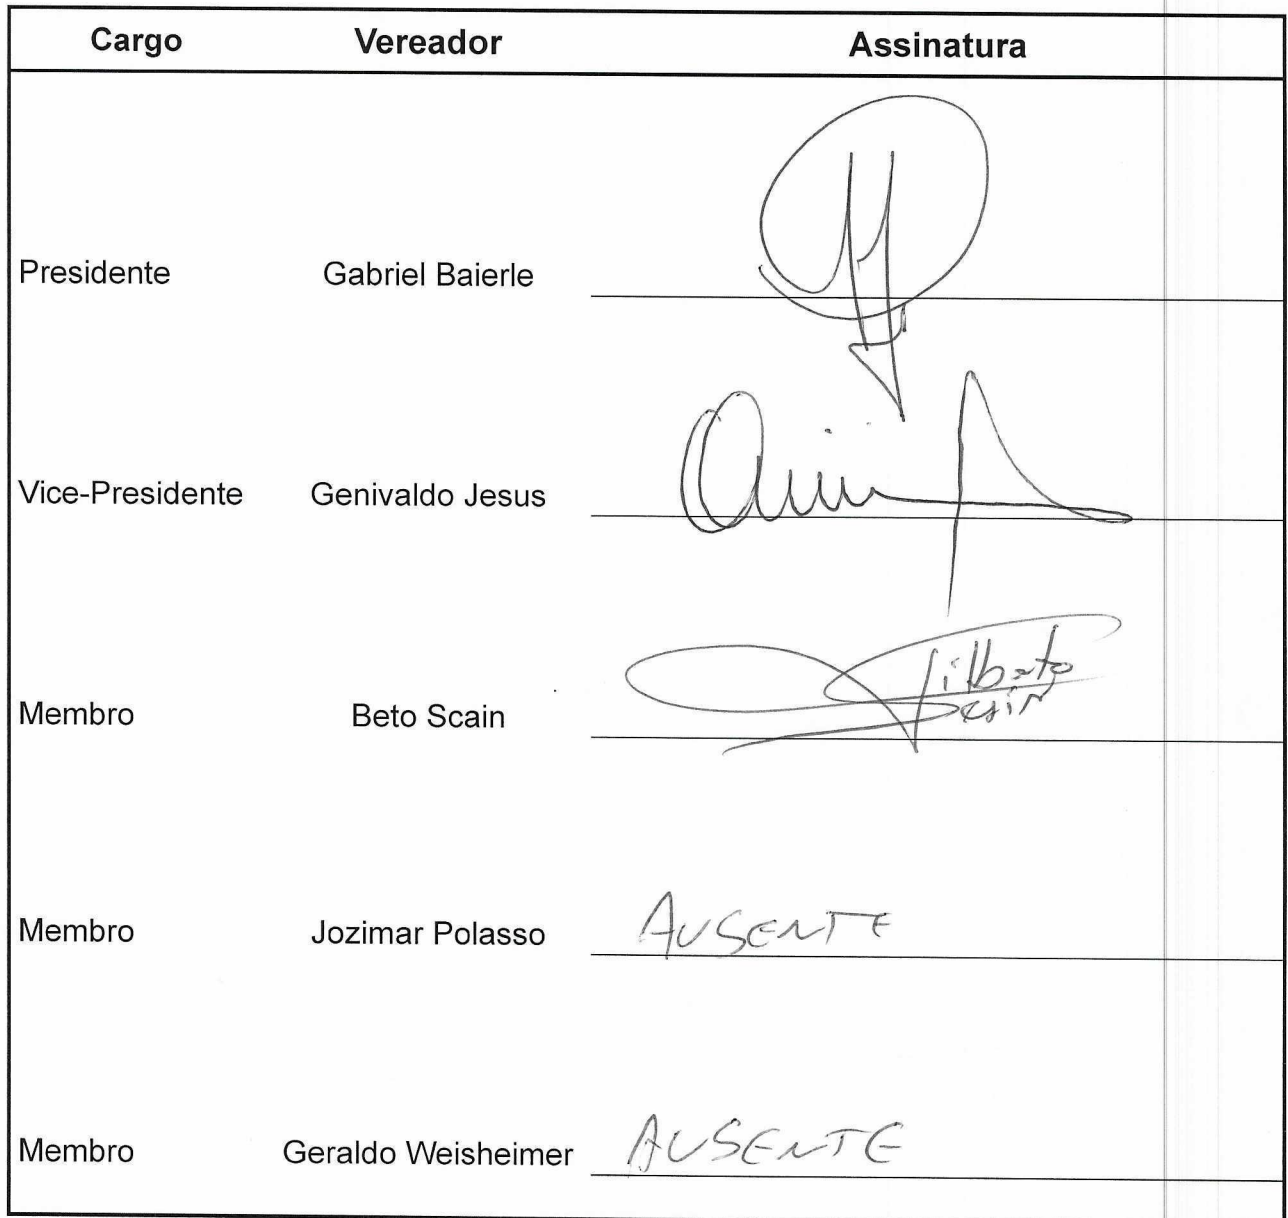 Cargo Vereador Assinatura
Presidente Gabriel Baierle
Vice-Presidente Genivaldo Jesus
Membro Beto Scain Gilberto
Scain
Membro Jozimar Polasso AUSENTE
Membro Geraldo Weisheimer AUSENTE